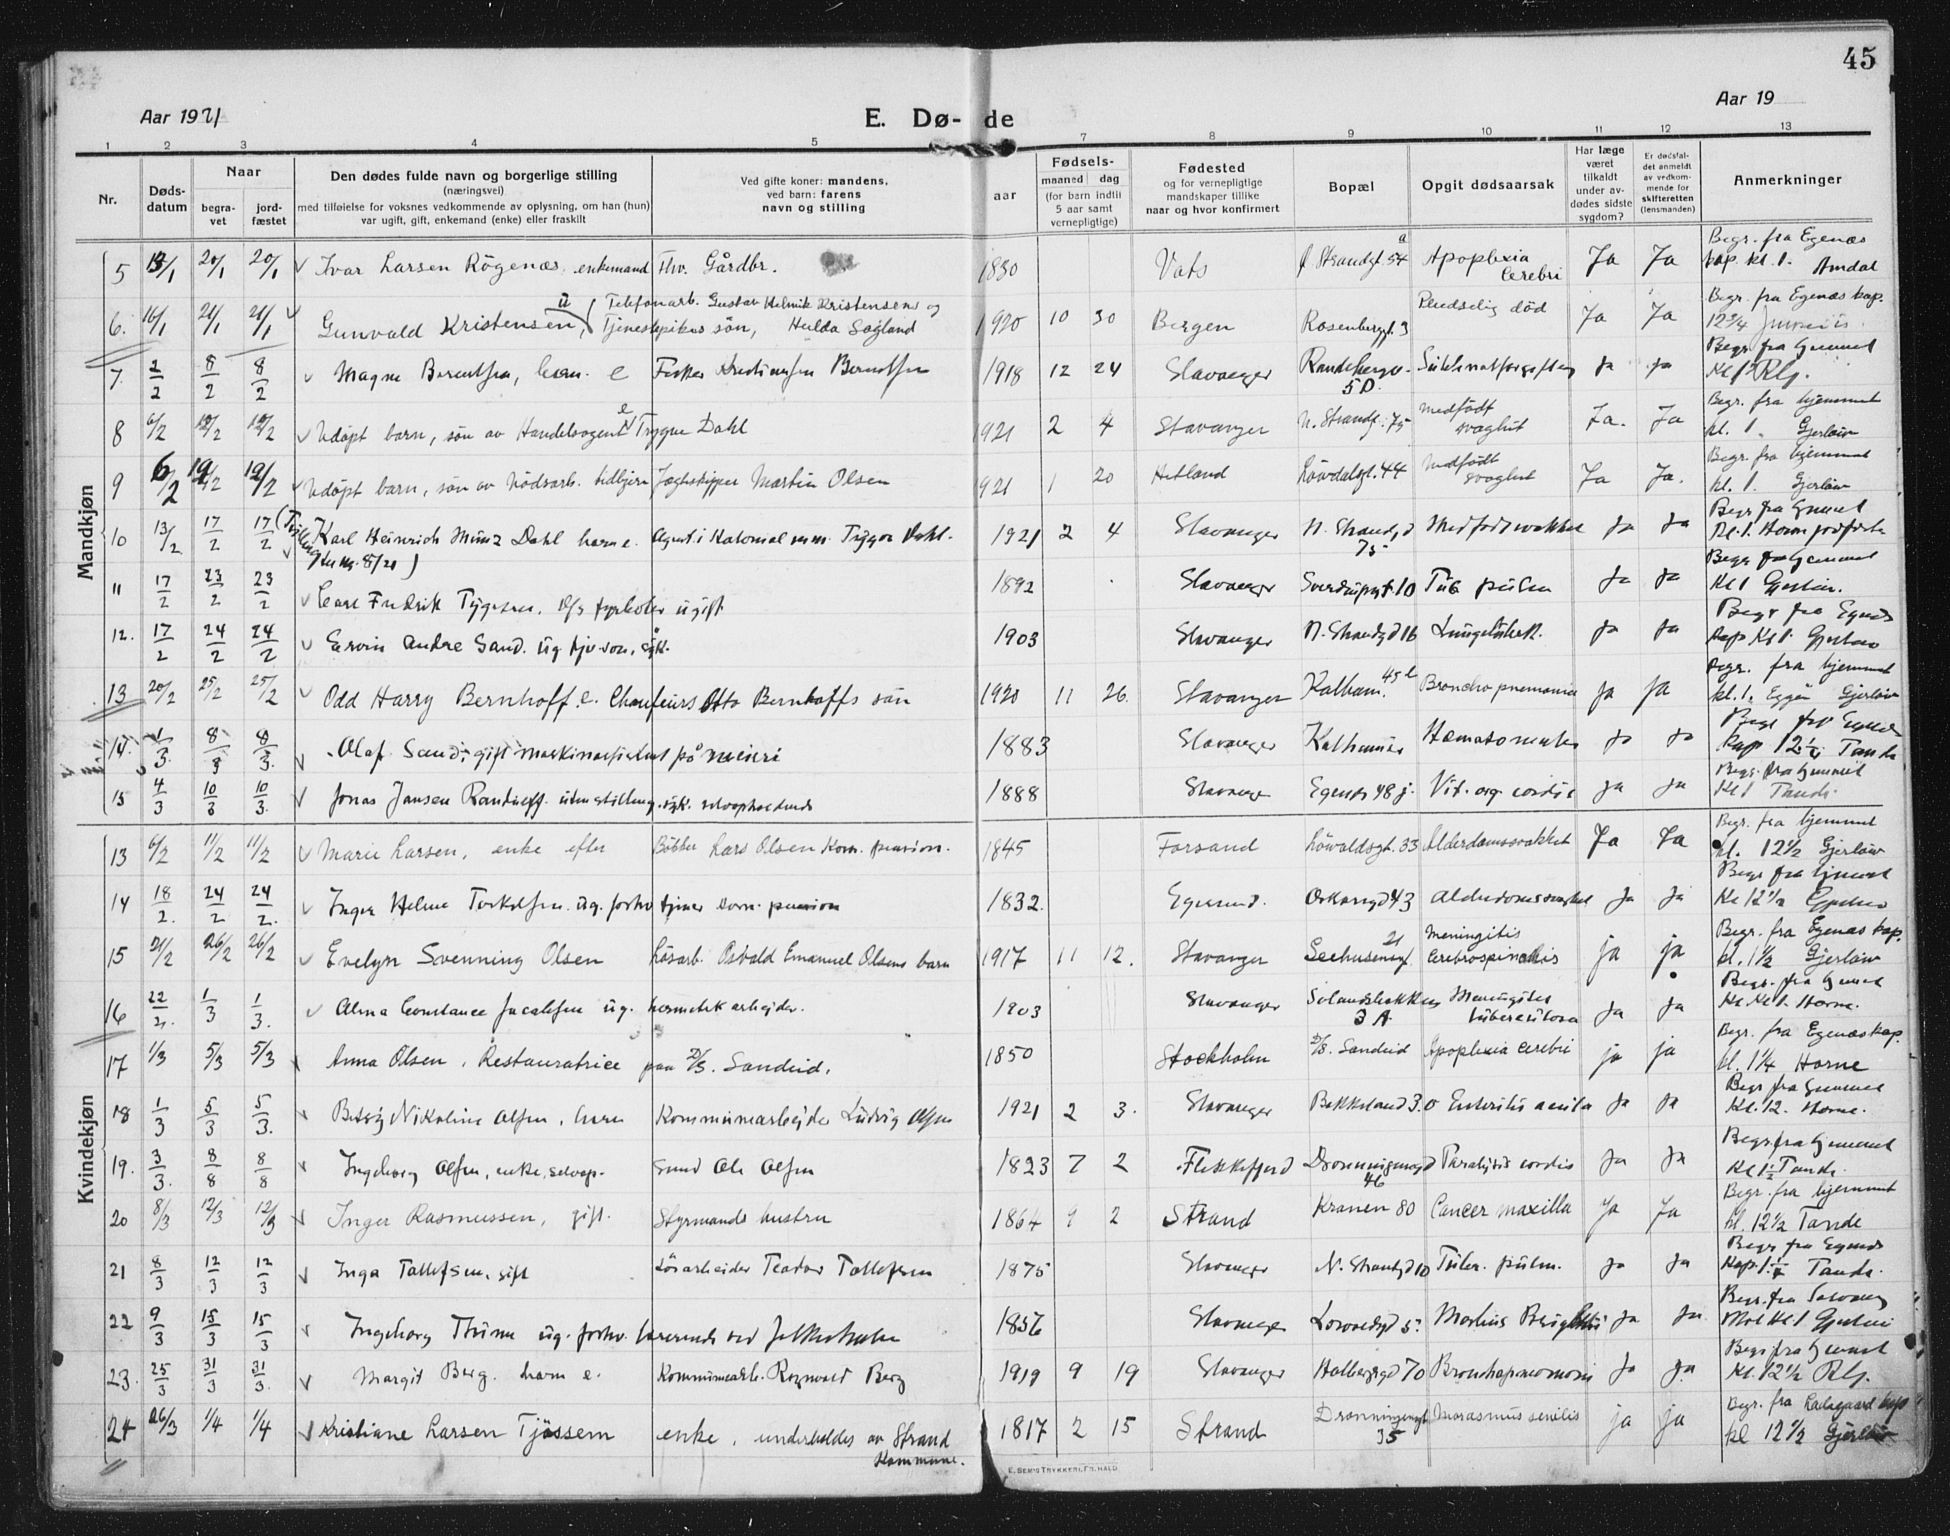 45
Aar 1921
E. Dø- de
Aar 19
1 2 3 4 5 7 8 9 10 11 12 13
Nr.
Døds-datum
Naar
begra-vet
jord-fæstet
Den dødes fulde navn og borgerlige stilling
(næringsvei)
med tilføielse for voksnes vedkommende av oplysning, om han (hun)
var ugift, gift, enkemand (enke) eller fraskilt
Ved gifte koner: mandens,
ved barn: farens
navn og stilling
Fødsels-
aar
maaned dag
(for barn indtil
5 aar samt
vernepligtige)
Fødested
og for vernepligtige
mandskaper tillike
naar og hvor konfirmert
Bopæl
Opgit dødsaarsak
Har læge
været
tilkaldt
under av-
dødes sidste
sygdom?
Er dødsfal-
det anmeldt
av vedkom-
mende for
skifteretten
(lensmanden)
Anmerkninger
Mandkjøn
5 13/1 20/1 20/1 Ivar Larsen Rögenæs, enkemand Fhv. Gårdbr. 1830 Vats Ø Strandgt. 54 a Apoplexia cerebri Ja Ja Begr. fra Egenæs kap. kl. 1. Amdal
6. 16/1 21/1 21/1 Gunvald Kristensen, u Telefonarb. Gustav Helmik Kristensen og Tjenestepikes søn, Hulda Sagland 1920 10 30 Bergen Rosenberggt. 3 Pludselig død Ja Ja Begr. fra Egenæs kap. 12 3/4
7. 2/2 8/2 8/2 Magne Berentsen, barn. e Fisker Berentsen 1918 12 24 Stavanger Randebergv. 5D. Ja Ja Begr fra hjemmet Kl 1
8 6/2 12/2 12/2 Udøpt barn, søn av Handelsagent e Trygve Dahl 1921 2 4 Stavanger N. Strandg. 75 medfödt svaghet Ja. Ja Begr. fra hjemmet kl. 1. Gjerløw
9 6/2 19/2 19/2 Udøpt barn, søn av Nödsarb. tidligere Jægtskipper Martin Olsen 1921 1 20 Hetland Lövdalsgt. 44 medfödt svaghet Ja Ja. Begr. fra hjemmet kl. 1. Gjerløw
10 13/2 17/2 17/2 (Tvilling til nr. 8/21) Karl Heinrich Münz Dahl barn e. Agent i Kolonial m.m. Trygve Dahl. 1921 2 4 Stavanger N. Strandgd 75 Medfødt svakhet Ja Ja Begr fra hjemmet Kl. 1. Horne
11 17/2 23/2 23/2 Carl Fredrik Tygesen, fyrbøter ugift 1892 Stavanger Sverdrupsgt. 10 Tub pulm Ja Ja Begr fra hjemmet Kl 1 Gjerløw.
12. 17/2 24/2 24/2 Ervin Andre Sand. ug 1903 Stavanger N. Strandgd 16 Ja Ja Begr fra Egenæs Kap Kl 1. Gjerløw
13 20/2 25/2 25/2 Odd Harry Bernhoff. e. Chauffeurs Otto Bernhoffs søn 1920 11 26. Stavanger Kalham. 45 b Broncho pnemonia Ja Ja Begr. fra hjemmet kl. 1. Gjerløw
14. 1/3. 8/3 8/3. Olaf Sand, gift maskinassistent på meieri 1883 Stavanger Ja Ja Begr fra Egenæs Kap 12 1/2 Tande
15 4/3 10/3 10/3. Jonas Jansen uten stilling, syk. selvopholdende 1888 Stavanger Egenæs 48 j. Vit. org. cordis Ja Ja Begr. fra hjemmet Kl 1 Tande.
Kvindekjøn
13 6/2 11/2 11/2 Marie Larsen, enke efter Bödker Lars Olsen Kom. pension. 1845 Forsand Lövdalsgt. 33 Alderdomssvakhet Ja Ja Begr. fra hjemmet kl. 12 1/2 Gjerløw
14 18/2. 24/2 24/2. Inger Helene Torkelsen. ug. forhv tjener kom. pension 1832. Egersund. Oskarsgd 43 Alderdomssvakhet Ja Ja Begr fra hjemmet Kl 12 1/2 Gjerløw
15 21/2 26/2 26/2 Evelyn Svenning Olsen Lösarb. Osvald Emanuel Olsens barn 1917 11 12. Stavanger Seehusensgt 21 Meningitis cerebrospinalis ja ja Begr. fra Egenæs kap. kl. 1 1/2 Gjerløw
16 22/2. 1/3 1/3. Alma Constance Jacobsen ug. hermetikarbejder. 1903 Stavanger Solandsbakken 3 A. Meningites tuberculosa Ja Ja Begr. fra hjemmet Kl. 1. Horne.
17 1/3 5/3 5/3 Anna Olsen, Restauratrice paa D/S. Sandeid. 1850 Stockholm D/S. Sandeid Apoplexia cerebri ja ja Begr. fra Egenæs kap. kl. 1 1/4 Horne
18 1/3 5/3 5/3. Betsy Nikoline Olsen, barn Kommunearbejder Ludvig Olsen 1921 2 3. Stavanger Bakkeland 3. Enteritis acuta Ja Ja Begr fra hjemmet Kl. 12. Horne.
19. 3/3. 8/8 8/8 Ingeborg Olsen, enke, selvop. Smed Ole Olsen 1823 7 2 Flekkefjord Dronningensgd 46 Paralysis cordis Ja Ja Begr fra hjemmet Kl 1 1/2 Tande.
20 8/3 12/3 12/3 Inger Rasmussen, gift. Styrmands hustru 1864 9 2 Strand Kranen 80 Cancer maxilla Ja Ja Begr. fra hjemmet kl. 12 1/2 Tande
21 8/3 12/3 12/3 Inga Tollefsen, gift Lösarbeider Teodor Tollefsen 1875 Stavanger N. Strandgd 10 Tuber. pulm. Ja Ja Begr fra Egenæs Kap. 1 1/4 Tande.
22 9/3 15/3 15/3 Ingeborg Thime ug. forhv. lærerinde ved 1856 Stavanger 5. Morbus Brightii Ja Ja Begr. fra Kl 1 Gjerløw
23. 25/3 31/3 31/3. Margit Berg. barn e. Kommunearb. Rognvald Berg 1919 9 19 Stavanger Holbergsgd 70 Bronkopneumoni Ja Ja Begr fra hjemmet Kl. 12 1/2
24 26/3 1/4 1/4 Kristiane Larsen Tjössem enke, underholdes av Strand Kommune. 1817 2 15 Strand Dronningensgt 35 Marasmus senilis ja ja Begr. fra Ladegaard kap kl 12 1/2 Gjerløw
E. SEM'S TRYKKERI, FR.HALD